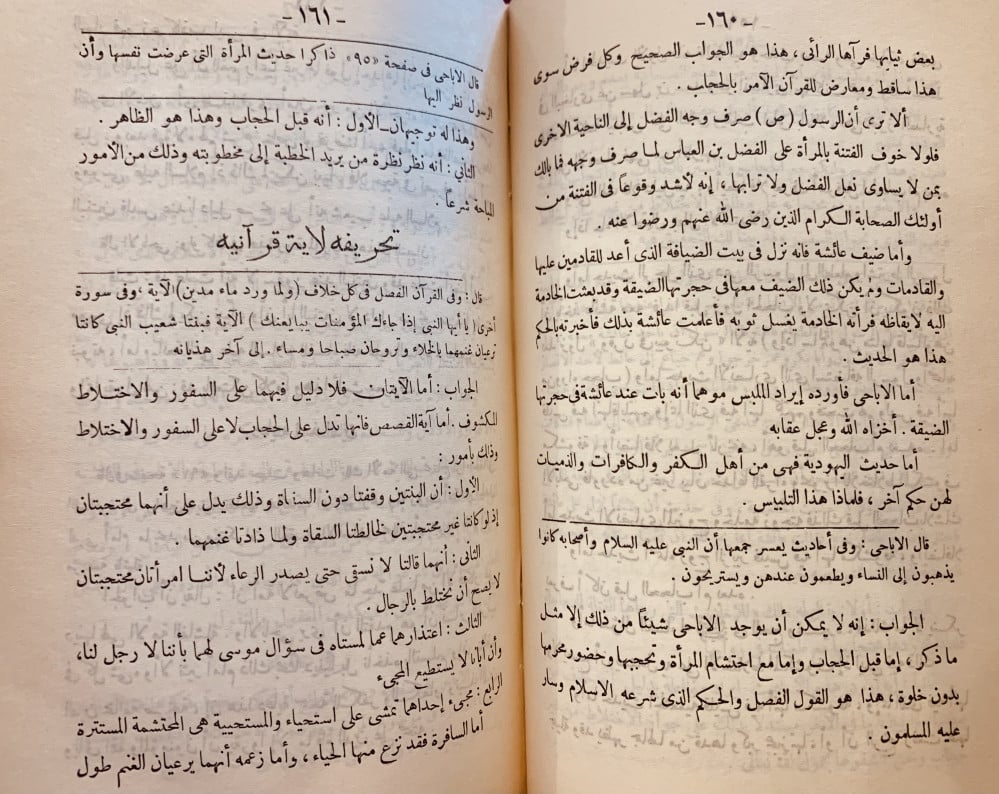 -١٦٠-
بعض ثيابها فرآها الرائى ، هذا هو الجواب الصحيح وكل فرض سوى
هذا ساقط ومعارض للقرآن الآمر بالحجاب .
ألا ترى أن الرسول (ص) صرف وجه الفضل إلى الناحية الاخرى
فلولا خوف الفتنة بالمرأة على الفضل بن العباس لما صرف وجهه فما بالك
بمن لا يساوى نعل الفضل ولا ترابها ، إنه لأشد وقوعاً فى الفتنة من
أولئك الصحابة الكرام الذين رضى الله عنهم ورضوا عنه .
وأما ضيف عائشة فانه نزل فى بيت الضيافة الذى أعد للقادمين عليها
والقادمات ولم يكن ذلك الضيف معها فى حجرتها الضيقة وقد بعثت الخادمة
اليه لايقاظه فرأته الخادمة يغسل ثوبه فأعلمت عائشة بذلك فأخبرته بالحكم
هذا هو الحديث .
أما الاباحى فأورده إيراد الملبس موهما أنه بات عند عائشة فى حجرتها
الضيقة . أخزاه الله وعجل عقابه
أما حديث اليهودية فهى من أهل الكفر والكافرات والذميات
لهن حكم آخر ، فلماذا هذا التلبيس .
قال الاباحى : وفى أحاديث يعسر جمعها أن النبى عليه السلام وأصحابه كانوا
يذهبون إلى النساء ويطعمون عندهن ويستريحون .
الجواب : إنه لا يمكن أن يوجد الاباحى شيئاً من ذلك إلا مثل
ما ذكر ، إما قبل الحجاب وإما مع احتشام المرأة وتحجبها وحضور محرمها
بدون خلوة ، هذا هو القول الفصل والحكم الذى شرعه الاسلام وسار
عليه المسلمون .
-١٦١-
قال الاباحى فى صفحة «٩٥» ذاكرا حديث المرأة التى عرضت نفسها وأن
الرسول نظر اليها
وهذا له توجيهان ــ الأول : أنه قبل الحجاب وهذا هو الظاهر .
الثانى : أنه نظر نظرة من يريد الخطبة إلى مخطوبته وذلك من الأمور
المباحة شرعاً .
تحريفه لاية قرآنيه
قال : وفى القرآن الفصل فى كل خلاف (ولما ورد ماء مدين) الآية ، وفى سورة
أخرى ( يا أيها النبى إذا جاءك المؤمنات يبايعنك ) الآية فبنتا شعيب النبى كانتا
ترعيان غنمهما بالخلاء وتروحان صباحا ومساء . إلى آخر هذيانه .
الجواب : أما الآيتان فلا دليل فيهما على السفور والاختلاط
المكشوف . أما آية القصص فانها تدل على الحجاب لا على السفور والاختلاط
وذلك بأمور :
الأول : أن البنتين وقفتا دون السقاة وذلك يدل على أنهما محتجبتان
إذ لو كانتا غير محتجبتين لخالطتا السقاة ولما ذادتا غنمهما .
الثانى : أنهما قالتا لا نسقى حتى يصدر الرعاء لأننا امرأتان محتجبتان
لا يصح أن نختلط بالرجال .
الثالث : اعتذارهما عما لمستاه فى سؤال موسى لهما بأننا لا رجل لنا،
وأن أبانا لا يستطيع المجىء
الرابع : مجىء إحداهما تمشى على استحياء والمستحيية هى المحتشمة المستترة
أما السافرة فقد نزع منها الحياء ، وأما زعمه أنهما يرعيان الغنم طول